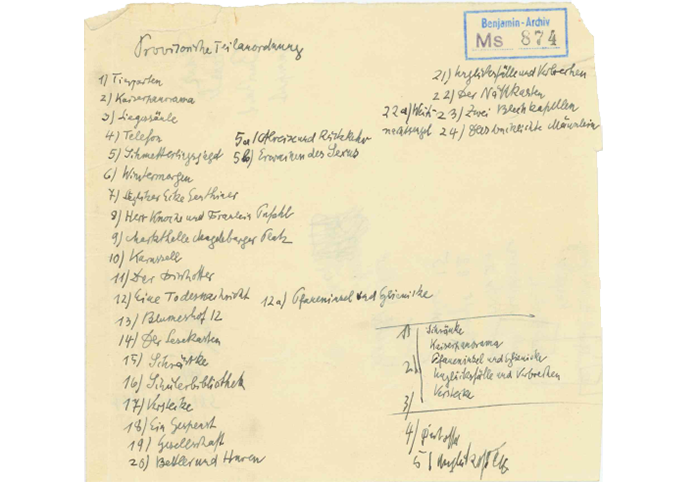 Benjamin-Archiv
Ms 874
Provisorische Teilanordnung
1) Tiergarten
2) Kaiserpanorama
3) Siegessäule
4) Telefon
5) Schmetterlingsjagd
5a) Abreise und Rückkehr
5b) Erwachen des Sexus
6) Wintermorgen
7) Steglitzer Ecke Genthiner
8) Herr Knoche und Fräulein Pufahl
9) Markthalle Magdeburger Platz
10) Karussell
11) Der Fischotter
12) Eine Todesnachricht
12a) Pfaueninsel und Glienicke
13) Blumeshof 12
14) Der Lesekasten
15) Schränke
16) Schülerbibliothek
17) Verstecke
18) Ein Gespenst
19) Gesellschaft
20) Bettler und Huren
21) Unglücksfälle und Verbrechen
22) Der Nähkasten
22a) Weih-
nachtsengel
23) Zwei Blechkapellen
24) Das bucklichte Männlein
1) Schränke
Kaiserpanorama
2) Pfaueninsel und Glienicke
Unglücksfälle und Verbrechen
Verstecke
3)
4)
5)